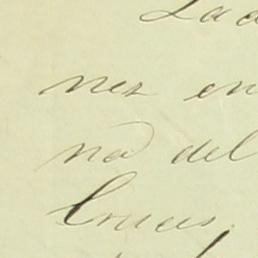 nez en
na del
Cruces